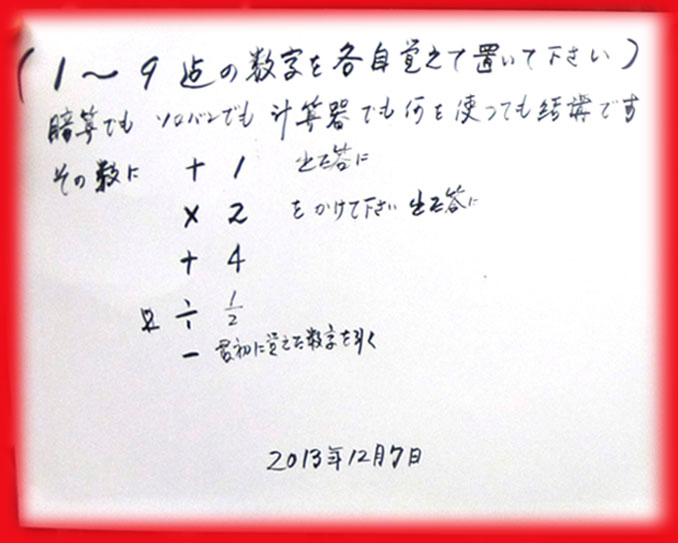 (1～9迄の数字を各自覚えて置いて下さい)
暗算でもソロバンでも計算器でも何を使っても結構です
その数に + 1 出た答に
× 2 をかけて下さい 出た答に
+ 4
÷ 1/2
- 最初に覚えた数字を引く
2013年12月7日